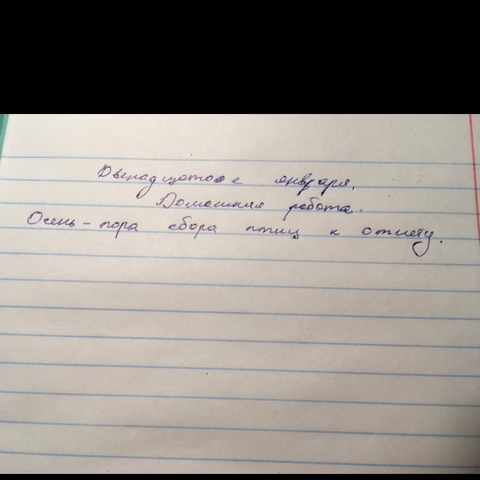 Двенадцатое января.
Домашняя работа.
Осень - пора сбора птиц к отлету.